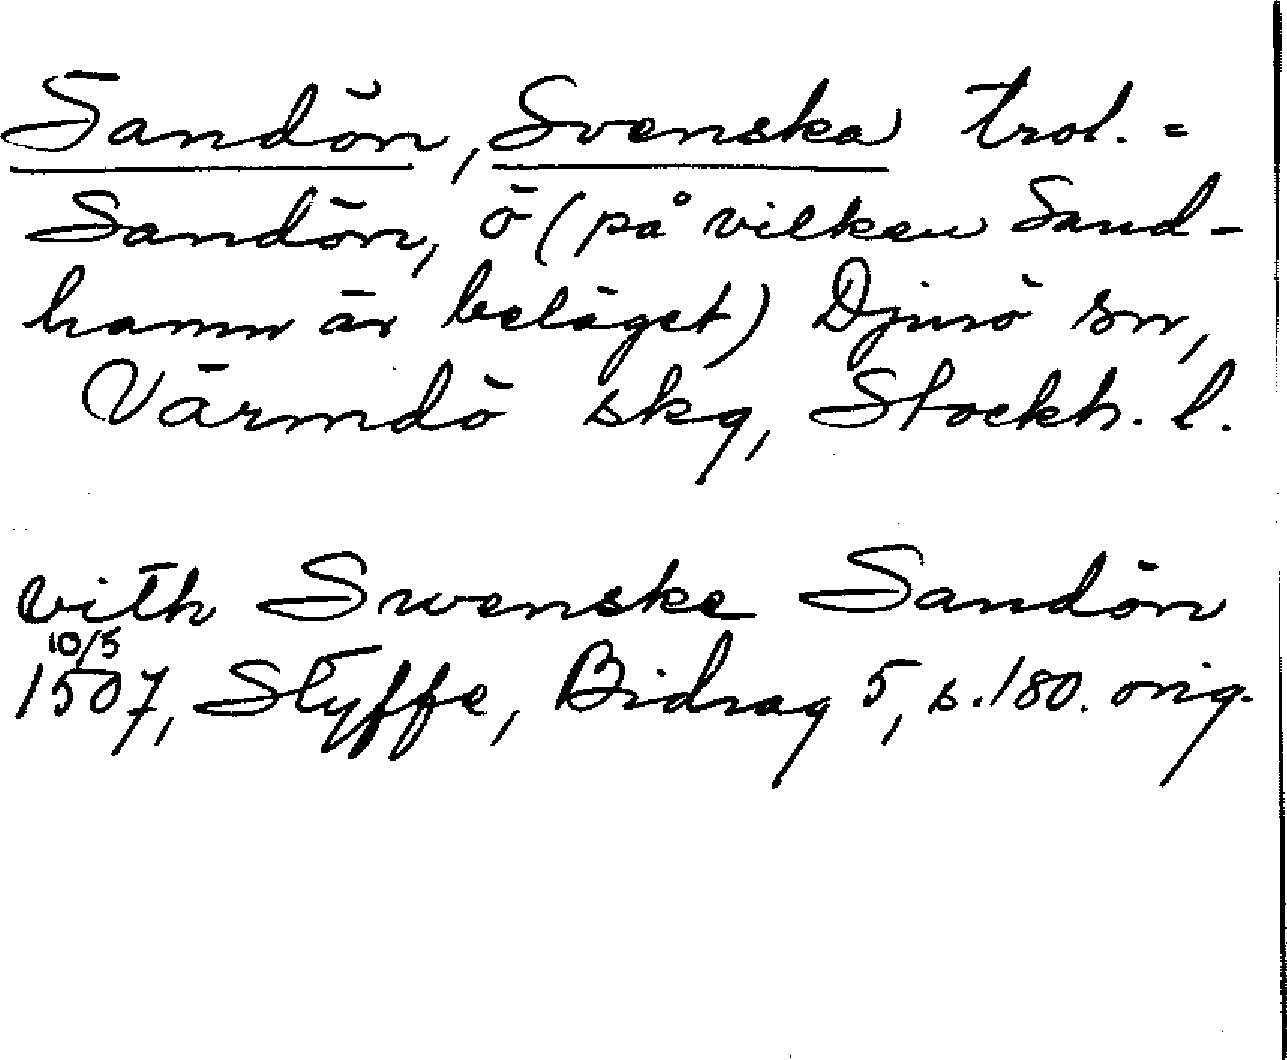 Sandön, Svenska trol. =
Sandön, ö (på vilken Sand-
hamn är beläget) Djurö sn,
Värmdö skg, Stockh. l.
vith Swenske Sandön
10/5
1507, Styffe, Bidrag 5, s. 180. orig.